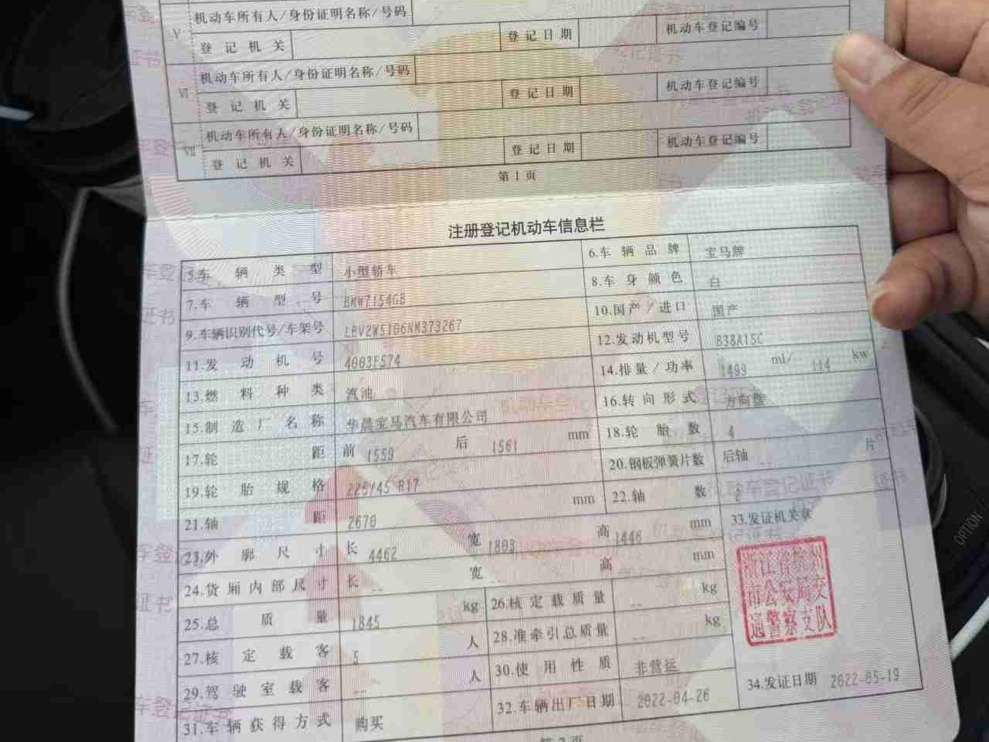 机动车所有人/身份证明名称/号码
V 登记机关 登记日期 机动车登记编号
机动车所有人/身份证明名称/号码
VI 登记机关 登记日期 机动车登记编号
机动车所有人/身份证明名称/号码
VII 登记机关 登记日期 机动车登记编号
第1页
注册登记机动车信息栏
5.车辆类型 小型轿车 6.车辆品牌 宝马牌
7.车辆型号 BMW7154GB 8.车身颜色 白
9.车辆识别代号/车架号 LBV2W5106NM373267 10.国产/进口 国产
11.发动机号 4003F574 12.发动机型号 B38A15C
13.燃料种类 汽油 14.排量/功率 1499 ml/ 114 kw
15.制造厂名称 华晨宝马汽车有限公司 16.转向形式 方向盘
17.轮距 前 1559 后 1561 mm 18.轮胎数 4
19.轮胎规格 225/45 R17 20.钢板弹簧片数 后轴 -- 片
21.轴距 2670 mm 22.轴数 2
23.外廓尺寸 长 4462 宽 1803 高 1446 mm 33.发证机关章
24.货厢内部尺寸 长 -- 宽 -- 高 -- mm
浙江省杭州
市公安局交
通警察支队
25.总质量 1845 kg 26.核定载质量 -- kg
27.核定载客 5 人 28.准牵引总质量 -- kg
29.驾驶室载客 -- 人 30.使用性质 非营运
31.车辆获得方式 购买 32.车辆出厂日期 2022-04-26 34.发证日期 2022-05-19
第2页
OPTION